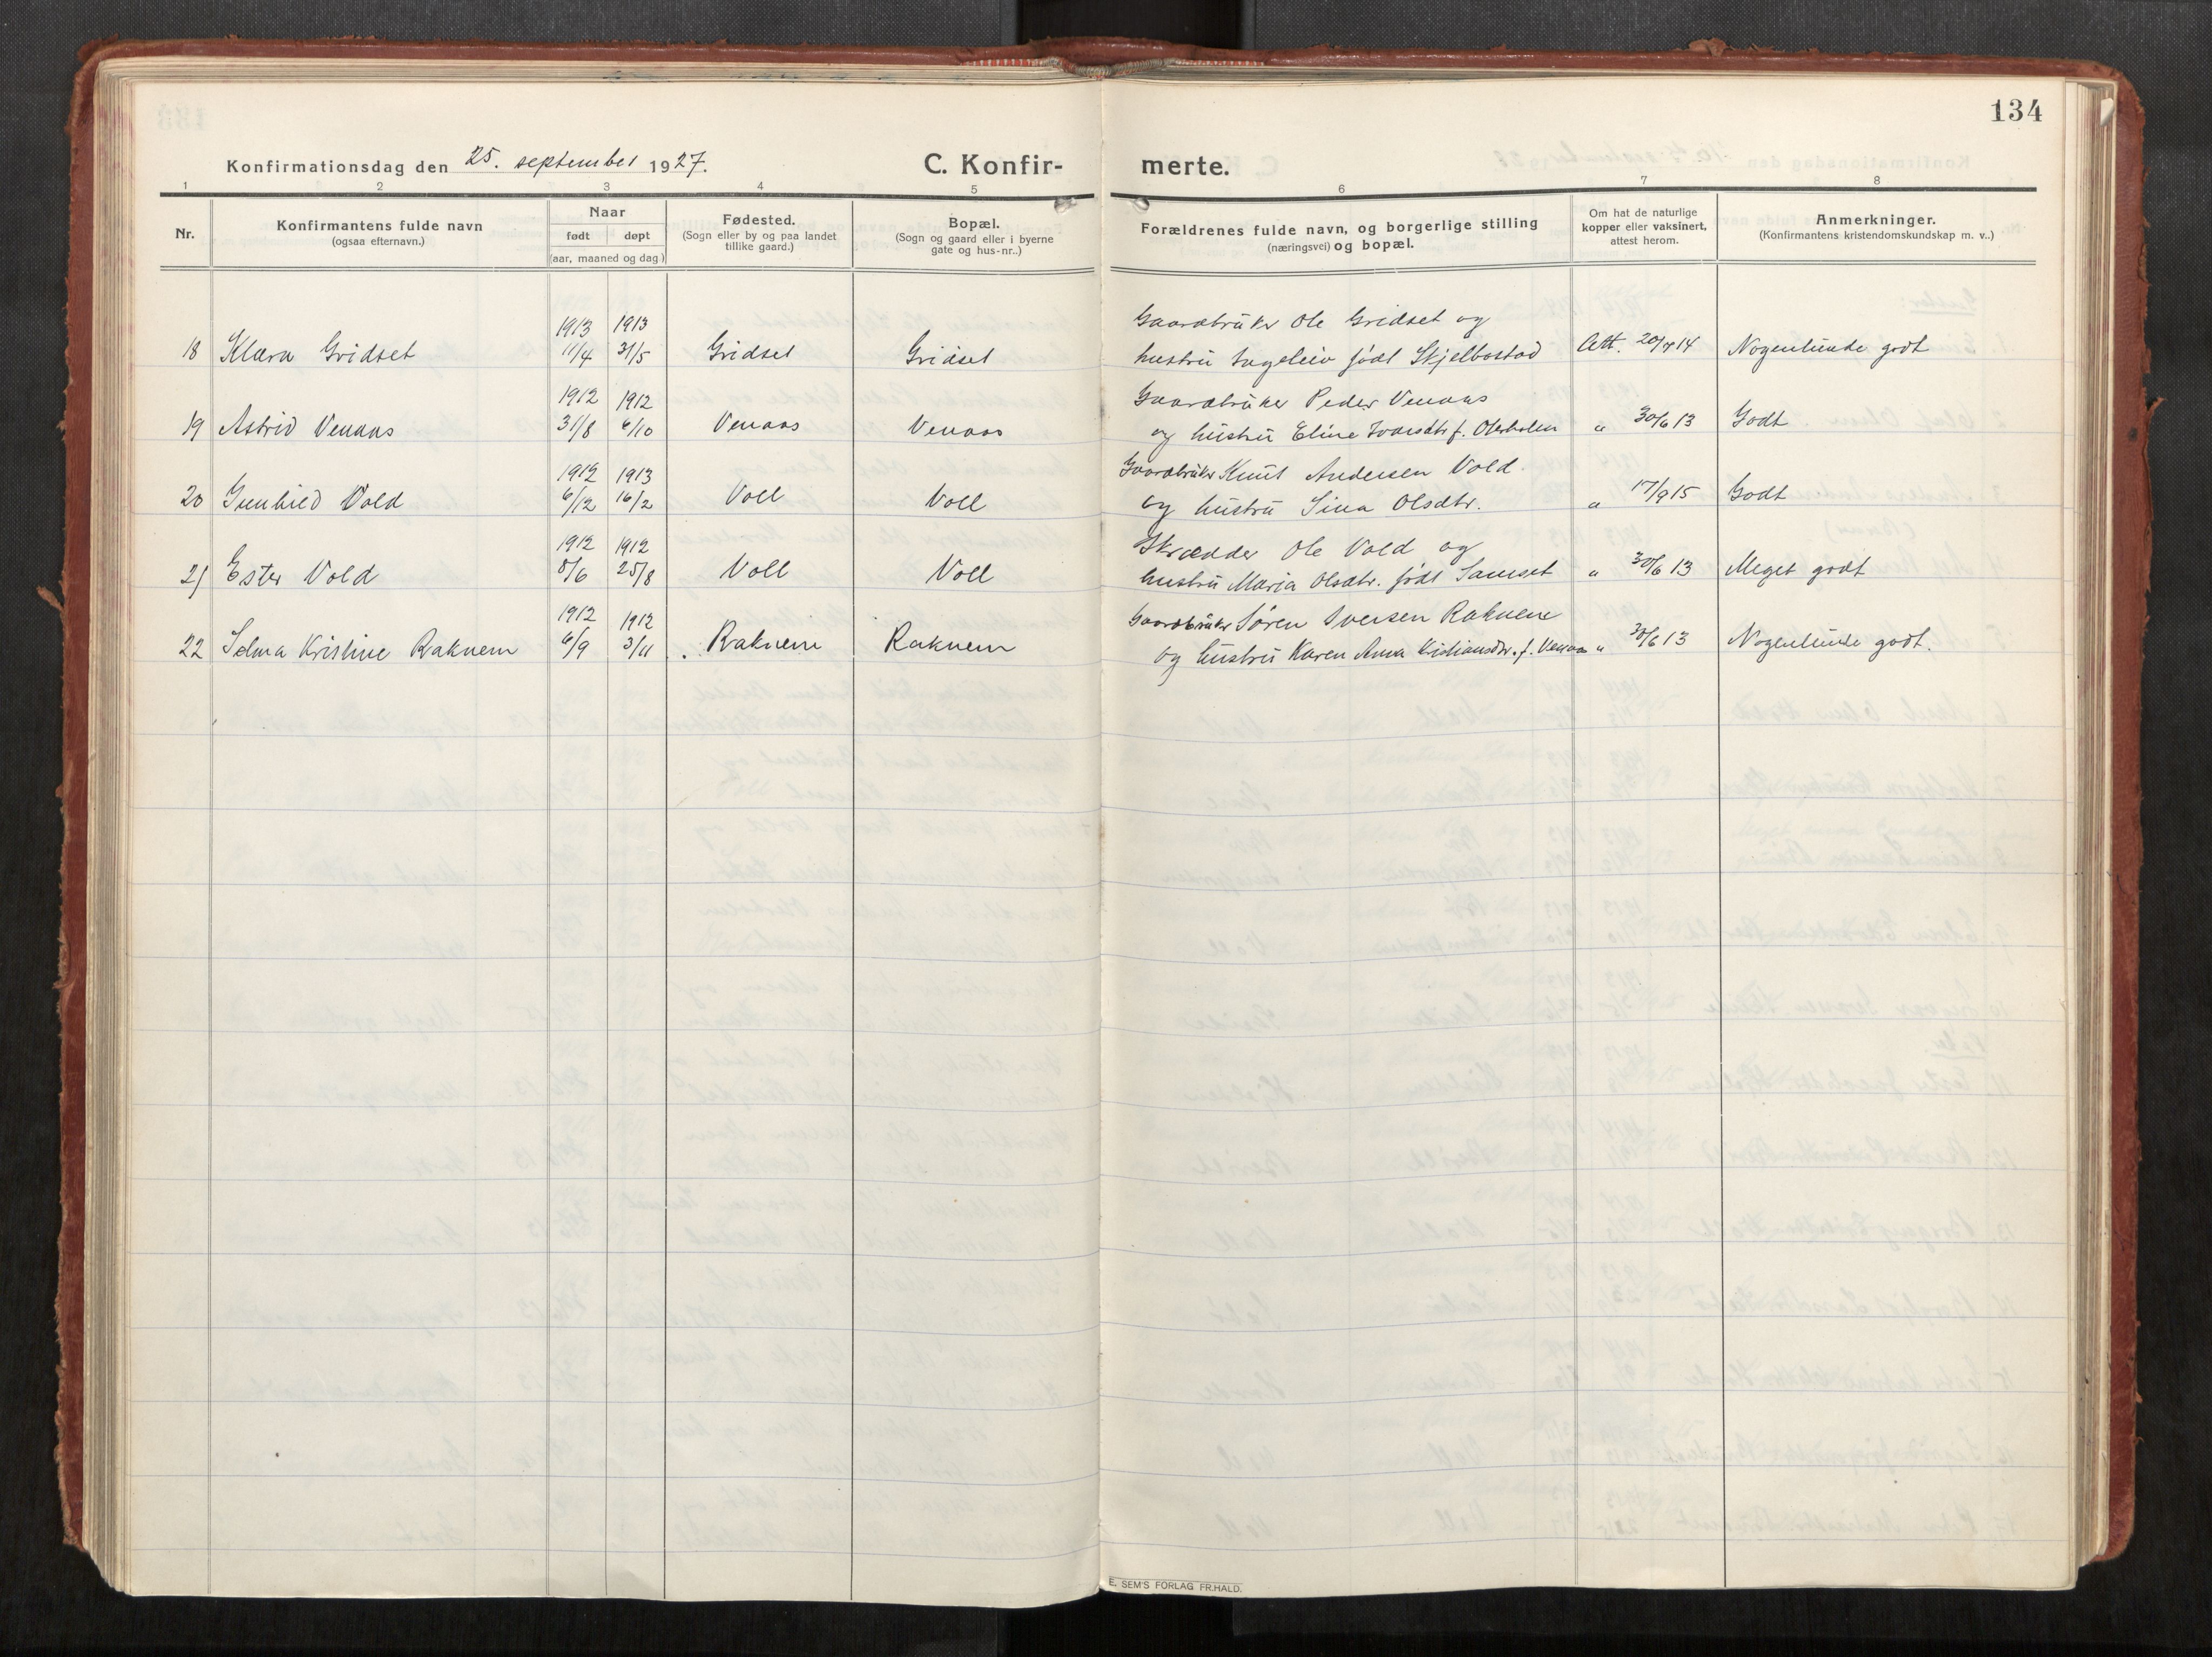 134
Konfirmationsdag den 25. september 1927.
C. Konfir-
merte.
1 2 3 4 5 6 7 8
Nr.
Konfirmantens fulde navn
(ogsaa efternavn.)
Naar
født døpt
(aar, maaned og dag.)
Fødested.
(Sogn eller by og paa landet
tillike gaard.)
Bopæl.
(Sogn og gaard eller i byerne
gate og hus-nr..)
Forældrenes fulde navn, og borgerlige stilling
(næringsvei) og bopæl.
Om hat de naturlige
kopper eller vaksinert,
attest herom.
Anmerkninger.
(Konfirmantens kristendomskundskap m. v..)
1913 1913 Gaardbruker Ole Gridset og
18 Klara Gridset 11/4 31/5 Gridset Gridset hustru Ingeleiv født Skjelbostad Att. 20/7 14 Nogenlunde godt
1912 1912 Gaardbruker Peder Venaas
19 Astrid Venaas 31/8 6/10 Venaas Venaas og hustru Eline Ivarsdtr f. Oterholm " 30/6 13 Godt
1912 1913 Gaardbruker Knut Andersen Vold
20 Gunhild Vold 6/12 16/2 Voll Voll og hustru Sina Olsdtr. " 17/9 15 Godt
1912 1912 Skrædder Ole Vold og
21 Ester Vold 8/6 25/8 Voll Voll hustru Maria Olsdtr. født Samset " 30/6 13 Meget godt
1912 1912 Gaardbruker Søren Iversen Raknem
22 Selma Kristine Raknem 6/9 3/11 Raknem Raknem og hustru Karen Anna Kristiansdtr. f. Venaas " 30/6 13 Nogenlunde godt.
E. SEM'S FORLAG FR.HALD.